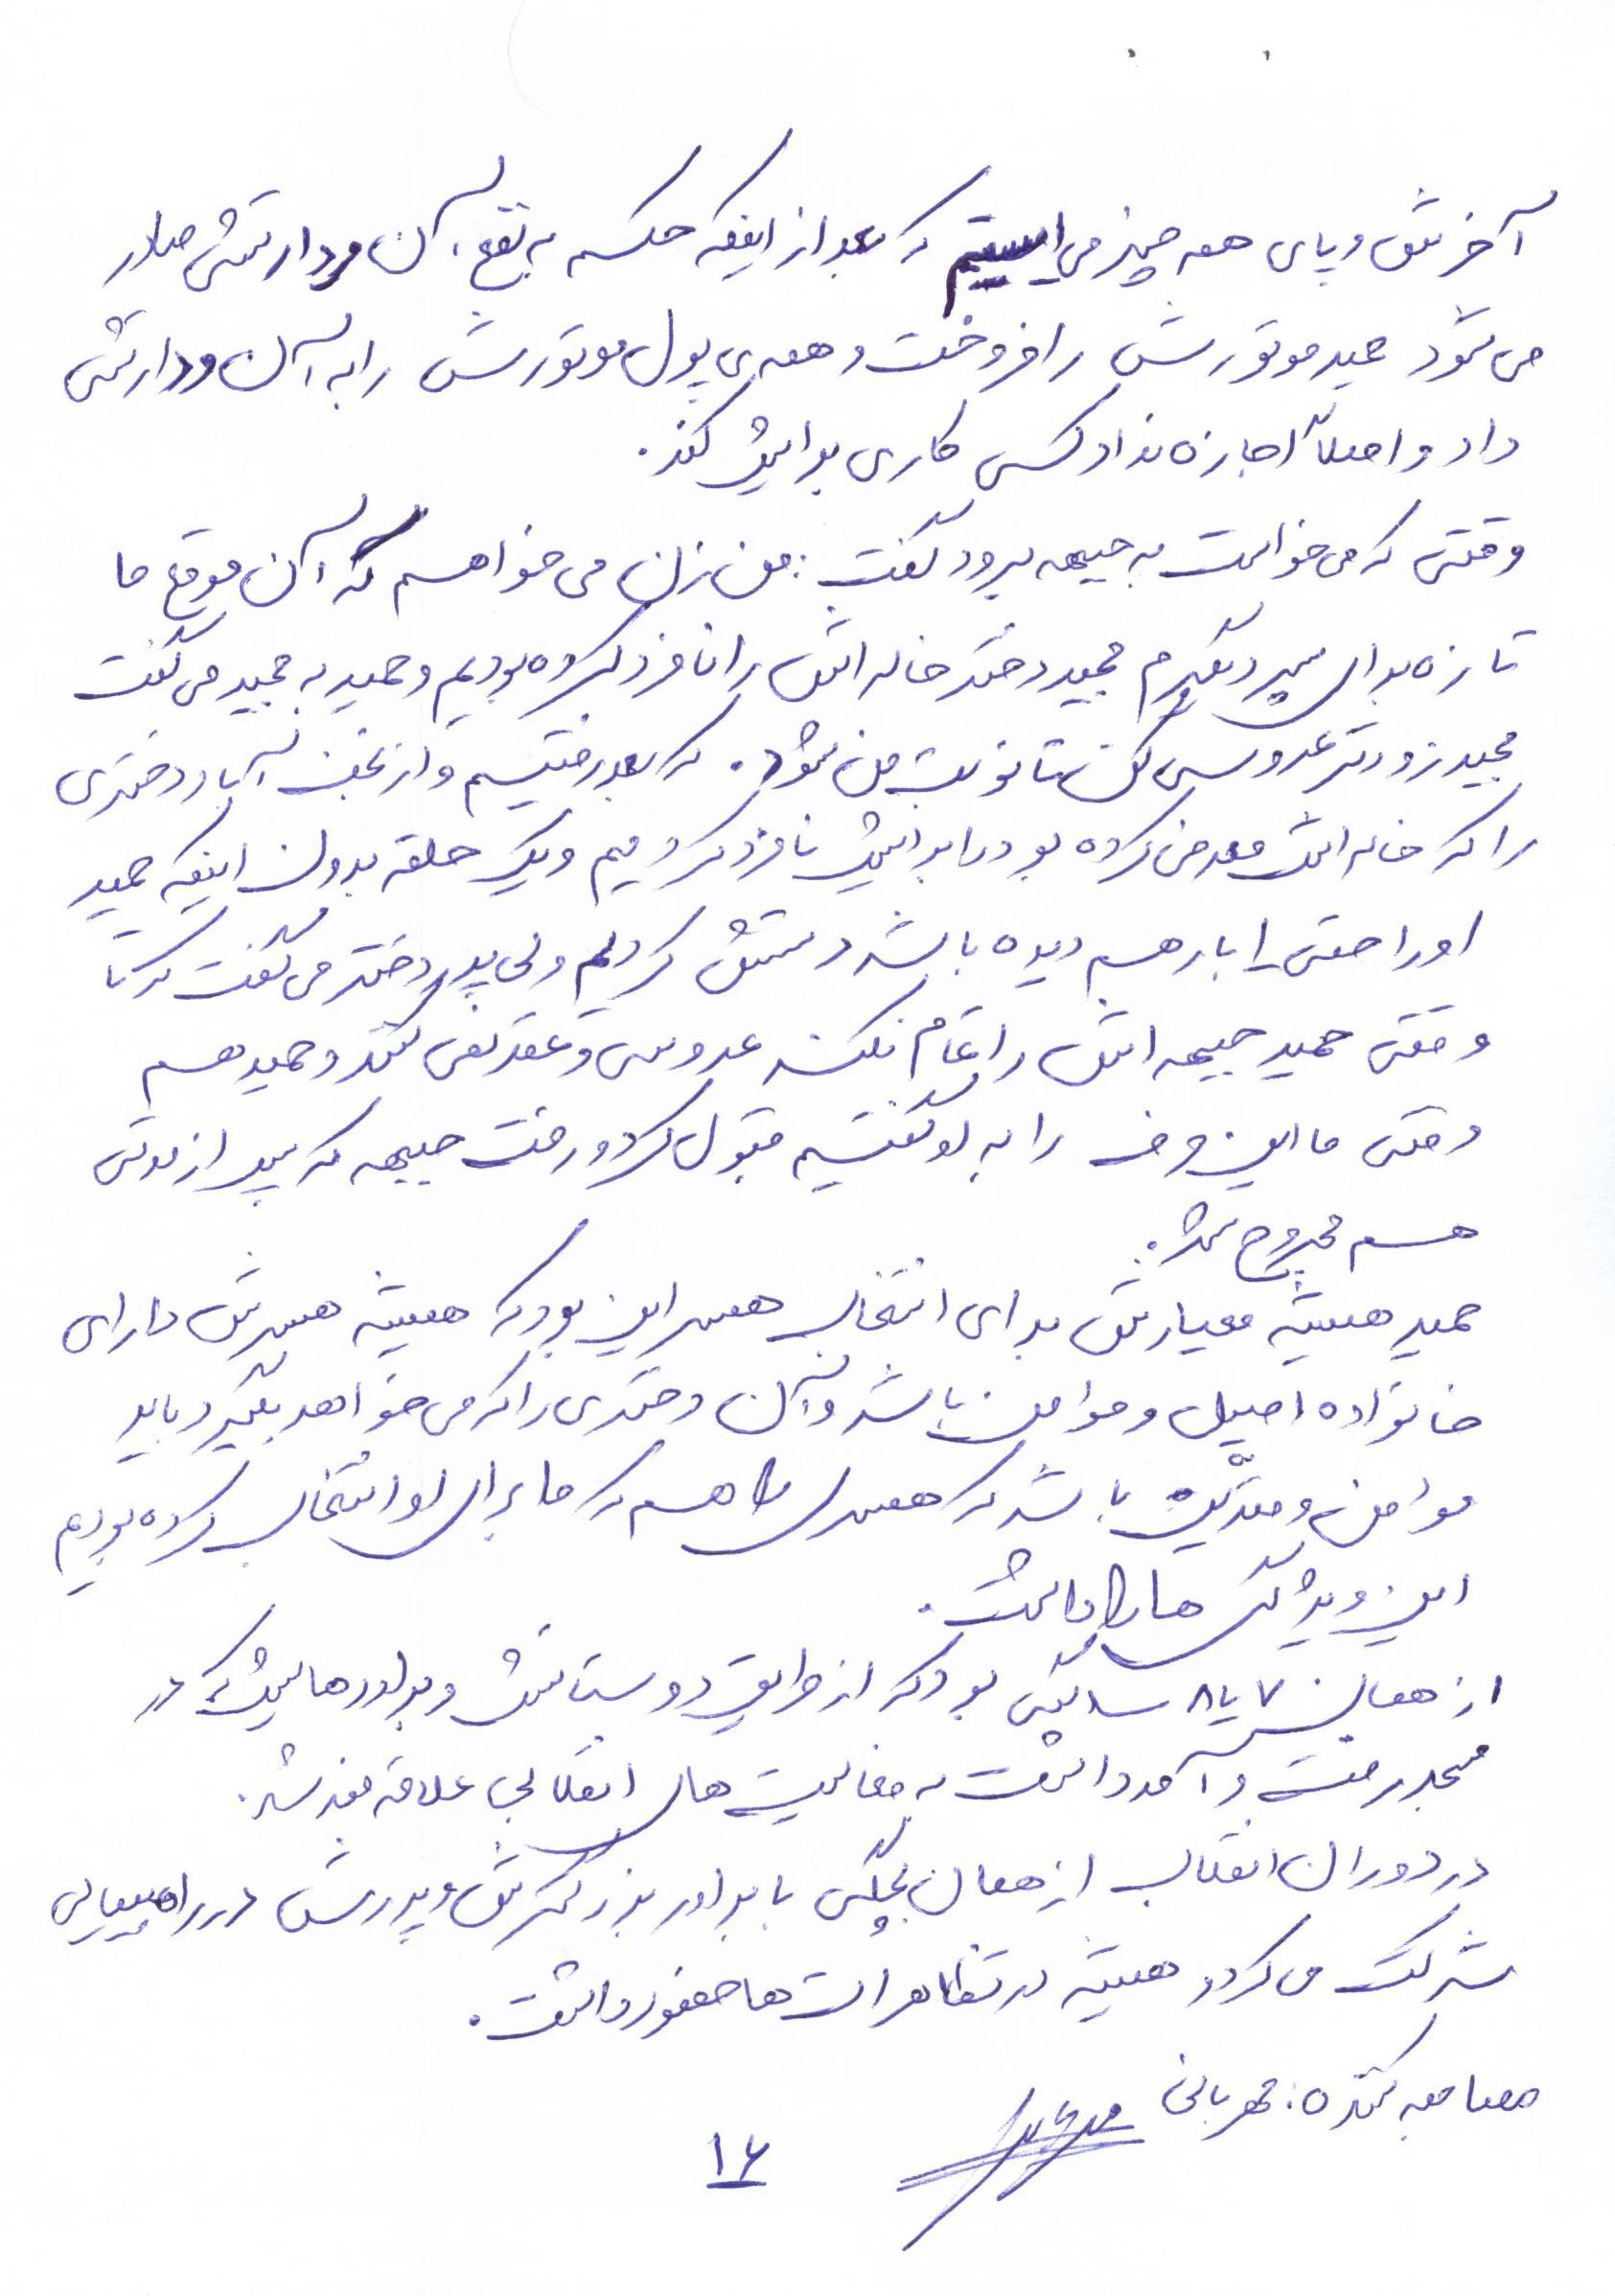 آخرش و پای همه چیز می ایستیم که بعد از اینکه حکم به نفع آن مرد ارتشی صادر
می شود حمید موتورش را فروخت و همه ی پول موتورش را به آن مرد ارتشی
داد و اصلاً اجازه نداد کسی کاری برایش کند.
وقتی که می خواست به جبهه برود گفت: من زن می خواهم که آن موقع ما
تازه برای پسر دیگرم مجید دختر خاله اش را نامزد کرده بودیم و حمید به مجید می گفت
مجید زودتر عروسی کن تا نوبت من شود. که بعد رفتیم و از نجف آباد دختری
را که خاله اش معرفی کرده بود را برایش نامزد کردیم و یک حلقه بدون اینکه حمید
او را حتی ۱ بار هم دیده باشد دستش کردیم ولی پدر دختر می گفت که تا
وقتی حمید جبهه اش را تمام نکند عروسی و عقد نمی کنند و حمید هم
وقتی ما این حرف را به او گفتیم قبول کرد و رفت جبهه که پس از مدتی
هم مجروح شد.
حمید همیشه معیارش برای انتخاب همسر این بود که همیشه همسرش دارای
خانواده اصیل و مؤمن باشد و آن دختری را که می خواهد بگیرد باید
مؤمن و متدیّن باشد که همسر را هم که ما برای او انتخاب کرده بودیم
این ویژگی ها را داشت.
از همان ۷ یا ۸ سالگی بود که از طریق دوستانش و برادرهایش که در
مسجد رفت و آمد داشت به فعالیت های انقلابی علاقه مند شد.
در دوران انقلاب از همان بچگی با برادر بزرگترش و پدرش در راهپیمایی
شرکت می کرد و همیشه در تظاهرات ها حضور داشت.
مصاحبه کننده: مهربانی
۱۶